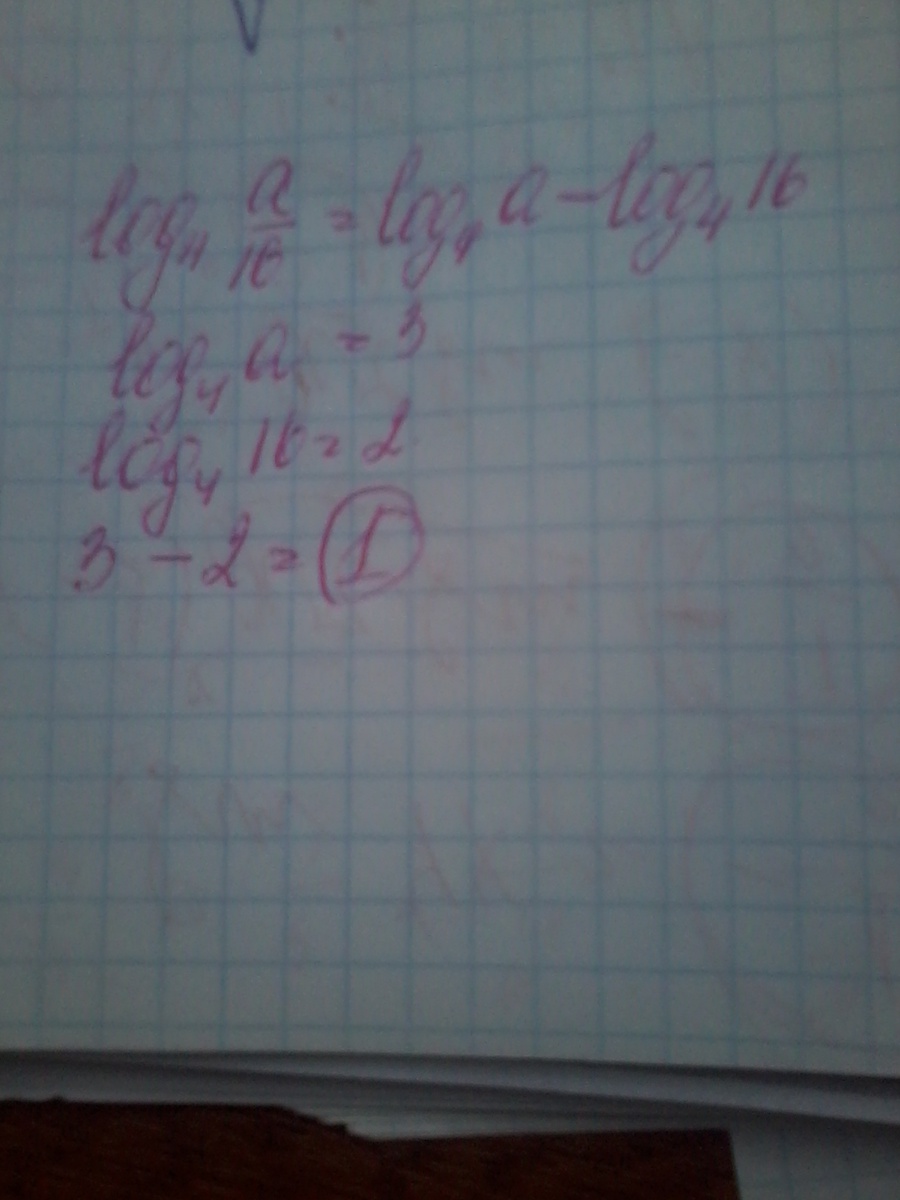 log₄ a/16 = log₄ a − log₄ 16
log₄ a = 3
log₄ 16 = 2
3 − 2 = 1